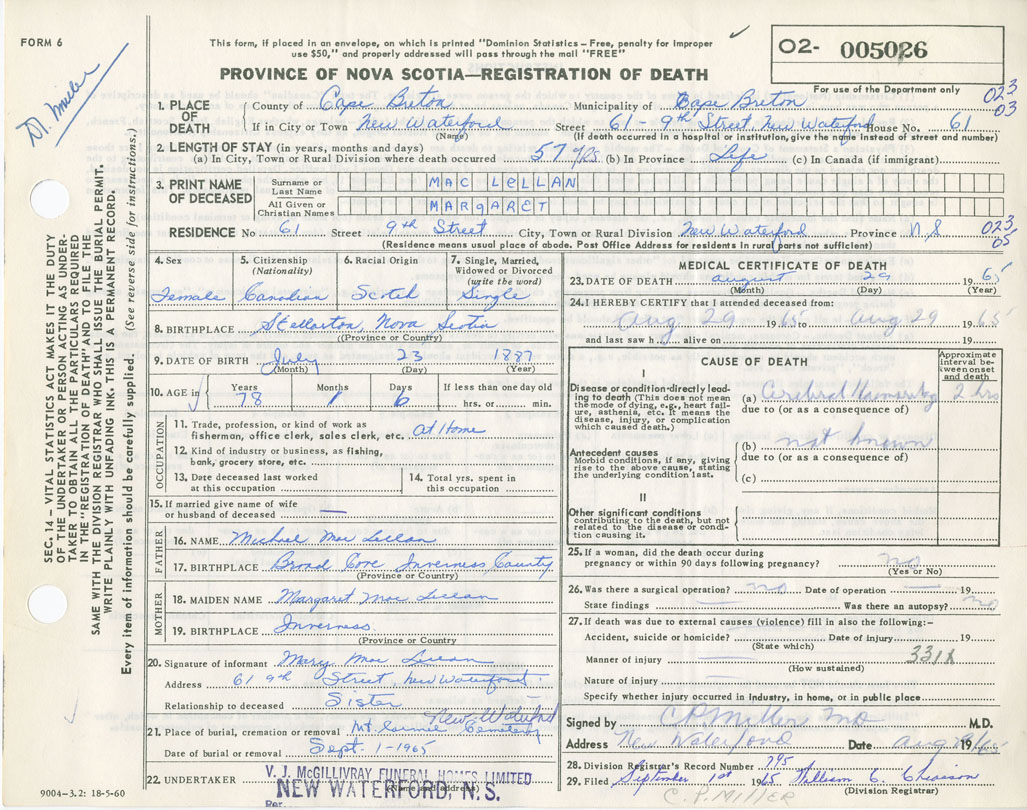 FORM 6
This form, if placed in an envelope, on which is printed "Dominion Statistics – Free, penalty for improper
use $50," and properly addressed will pass through the mail "FREE"
O2- 005026
For use of the Department only
PROVINCE OF NOVA SCOTIA—REGISTRATION OF DEATH
023
03
Dr. Miller
SEC. 14 – VITAL STATISTICS ACT MAKES IT THE DUTY
OF THE UNDERTAKER OR PERSON ACTING AS UNDER-
TAKER TO OBTAIN ALL THE PARTICULARS REQUIRED
IN THE "REGISTRATION OF DEATH" AND TO FILE THE
SAME WITH THE DIVISION REGISTRAR WHO SHALL ISSUE THE BURIAL PERMIT.
WRITE PLAINLY WITH UNFADING INK–THIS IS A PERMANENT RECORD.
Every item of information should be carefully supplied. (See reverse side for instructions.)
1. PLACE OF DEATH
County of Cape Breton Municipality of Cape Breton
If in City or Town New Waterford Street 61 - 9th Street, New Waterford House No. 61
(Name) (If death occurred in a hospital or institution, give the name instead of street and number)
2. LENGTH OF STAY (in years, months and days)
(a) In City, Town or Rural Division where death occurred 57 yrs (b) In Province Life (c) In Canada (if immigrant)
3. PRINT NAME OF DECEASED
Surname or Last Name MAC LELLAN
All Given or Christian Names MARGARET
RESIDENCE No 61 Street 9th Street City, Town or Rural Division New Waterford Province N.S
023
05
(Residence means usual place of abode. Post Office Address for residents in rural parts not sufficient)
4. Sex Female
5. Citizenship (Nationality) Canadian
6. Racial Origin Scotch
7. Single, Married, Widowed or Divorced (write the word) Single
8. BIRTHPLACE Stellarton, Nova Scotia
(Province or Country)
9. DATE OF BIRTH July 23 1887
(Month) (Day) (Year)
10. AGE in Years 78 Months 1 Days 6 If less than one day old hrs. or min.
OCCUPATION
11. Trade, profession, or kind of work as
fisherman, office clerk, sales clerk, etc. At Home
12. Kind of industry or business, as fishing,
bank, grocery store, etc.
13. Date deceased last worked at this occupation
14. Total yrs. spent in this occupation
15. If married give name of wife
or husband of deceased —
FATHER
16. NAME Michael Mac Lellan
17. BIRTHPLACE Broad Cove Inverness County
(Province or Country)
MOTHER
18. MAIDEN NAME Margaret Mac Lellan
19. BIRTHPLACE Inverness
(Province or Country)
20. Signature of informant Mary Mac Lellan
Address 61 9th Street, New Waterford
Relationship to deceased Sister
21. Place of burial, cremation or removal Mt Carmel Cemetery New Waterford
Date of burial or removal Sept. 1-1965
22. UNDERTAKER V. J. McGILLIVRAY FUNERAL HOMES LIMITED
(Name and address)
NEW WATERFORD, N. S.
Per.
9004–3.2: 18-5-60
MEDICAL CERTIFICATE OF DEATH
23. DATE OF DEATH August 29 1965
(Month) (Day) (Year)
24. I HEREBY CERTIFY that I attended deceased from:
Aug 29 1965 to Aug 29 1965
and last saw h alive on 19
CAUSE OF DEATH
Approximate interval between onset and death
I
Disease or condition directly lead-
ing to death (This does not mean
the mode of dying, e.g., heart fail-
ure, asthenia, etc. It means the
disease, injury, or complication
which caused death.)
(a) Cerebral Haemorrhag 2 hrs
due to (or as a consequence of)
Antecedent causes
Morbid conditions, if any, giving
rise to the above cause, stating
the underlying condition last.
(b) not known
due to (or as a consequence of)
(c)
II
Other significant conditions
contributing to the death, but not
related to the disease or condi-
tion causing it.
25. If a woman, did the death occur during
pregnancy or within 90 days following pregnancy? no
(Yes or No)
26. Was there a surgical operation? no Date of operation — 19
State findings — Was there an autopsy? no
27. If death was due to external causes (violence) fill in also the following:–
Accident, suicide or homicide? Date of injury 19
(State which)
Manner of injury 331X
(How sustained)
Nature of injury
Specify whether injury occurred in industry, in home, or in public place
Signed by C.P. Miller MD M.D.
Address New Waterford Date Aug 19
28. Division Registrar's Record Number 795
29. Filed September 1st 1965 William C. Chiasson
(Division Registrar)
C. P. MILLER